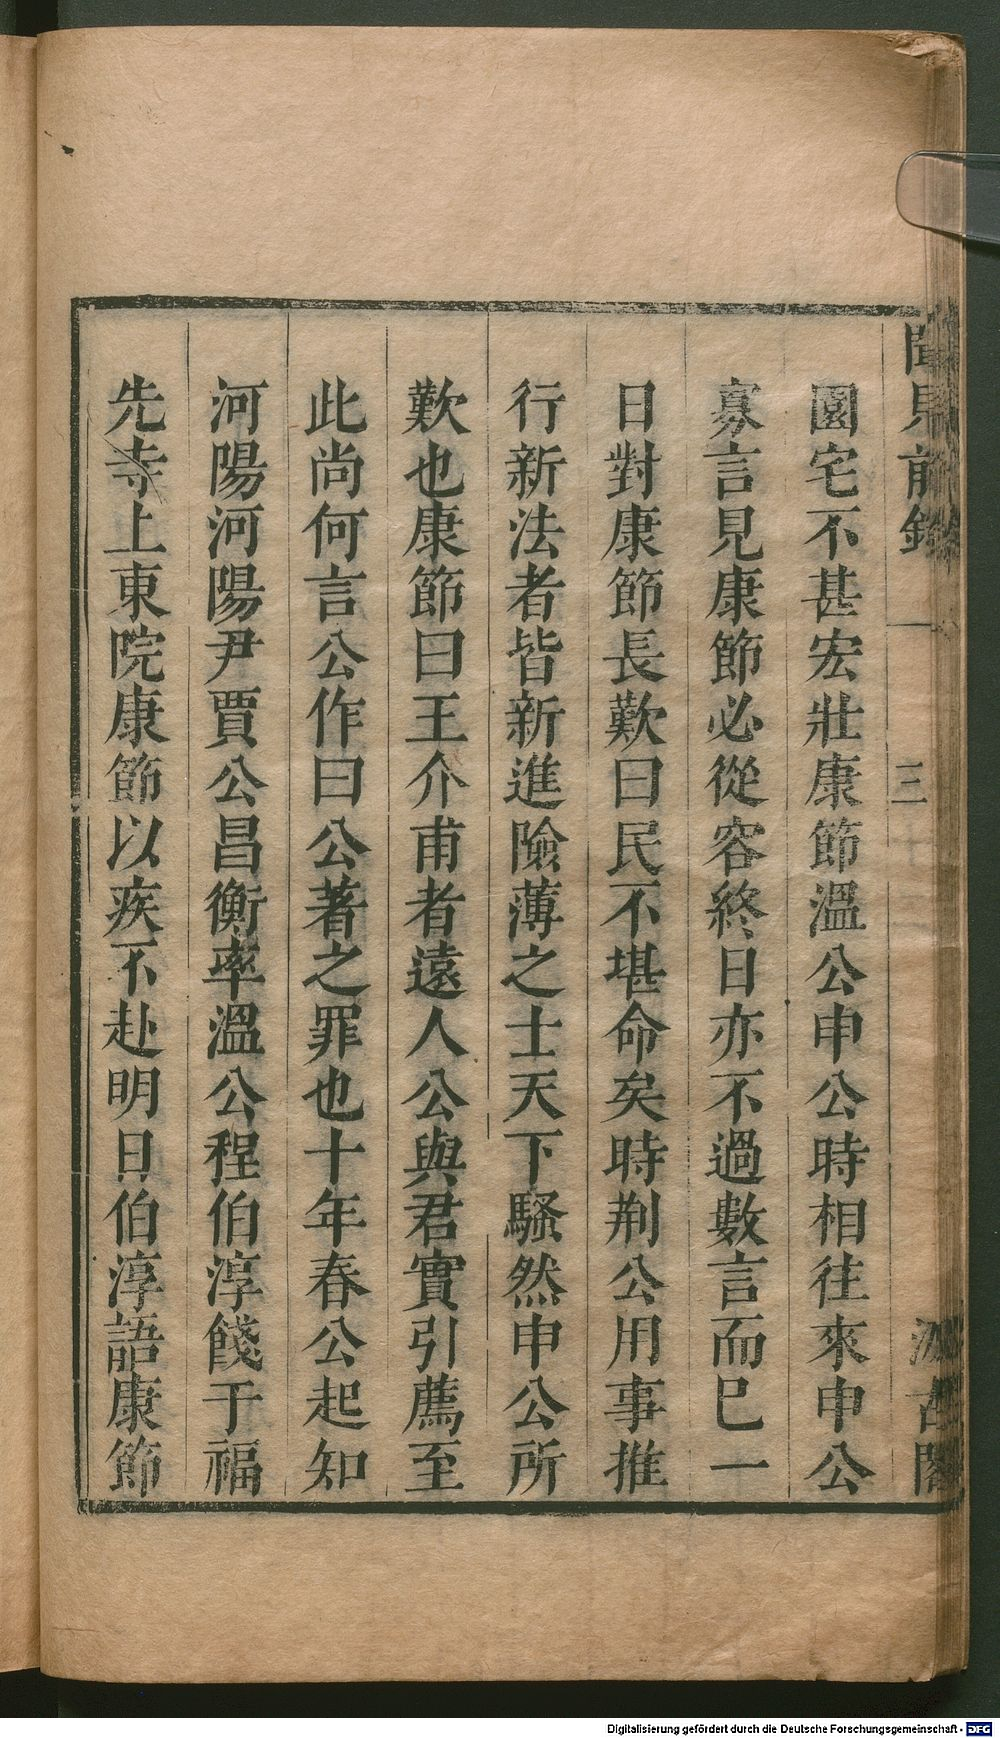 聞見前錄　一　三　汲古閣
園宅不甚宏壯康節溫公申公時相往來申公
寡言見康節必從容終日亦不過數言而巳一
日對康節長歎曰民不堪命矣時荆公用事推
行新法者皆新進險薄之士天下騷然申公所
歎也康節曰王介甫者遠人公與君實引薦至
此尚何言公作曰公著之罪也十年春公起知
河陽河陽尹賈公昌衡率溫公程伯淳餞于福
先寺上東院康節以疾不赴明日伯淳語康節
Digitalisierung gefördert durch die Deutsche Forschungsgemeinschaft - DFG